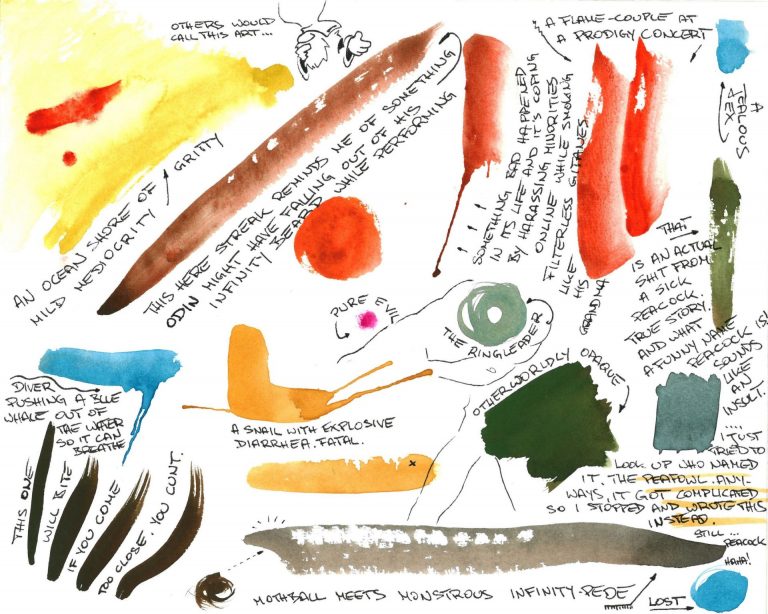 OTHERS WOULD
CALL THIS ART...
A FLAME-COUPLE AT
A PRODIGY CONCERT
A
JEALOUS
SEX
AN OCEAN SHORE OF
MILD MEDIOCRITY
GRITTY
THIS HERE STREAK REMINDS ME OF SOMETHING
ODIN MIGHT HAVE FALLING OUT OF HIS
INFINITY BEARD WHILE PERFORMING
SOMETHING BAD HAPPENED
IN ITS LIFE AND IT'S COPING
BY HARASSING MINORITIES
ONLINE WHILE SMOKING
FILTERLESS GITANES
LIKE
HIS
GRANDMA
THAT
IS AN ACTUAL
SHIT FROM
A SICK
PEACOCK.
TRUE STORY.
AND WHAT
A FUNNY NAME
PEACOCK IS!
SOUNDS
LIKE
AN
INSULT.
....
I JUST
TRIED TO
LOOK UP WHO NAMED
IT. THE PEAFOWL. ANY-
WAYS, IT GOT COMPLICATED
SO I STOPPED AND WROTE THIS
INSTEAD.
STILL...
PEACOCK
HAHA!
PURE EVIL
THE RINGLEADER
OTHERWORLDLY OPAQUE
DIVER
PUSHING A BLUE
WHALE OUT OF
THE WATER
SO IT CAN
BREATHE
A SNAIL WITH EXPLOSIVE
DIARRHEA. FATAL.
THIS ONE
WILL BITE
IF YOU COME
TOO CLOSE. YOU CUNT.
MOTHBALL MEETS MONSTROUS INFINITY-PEDE
LOST